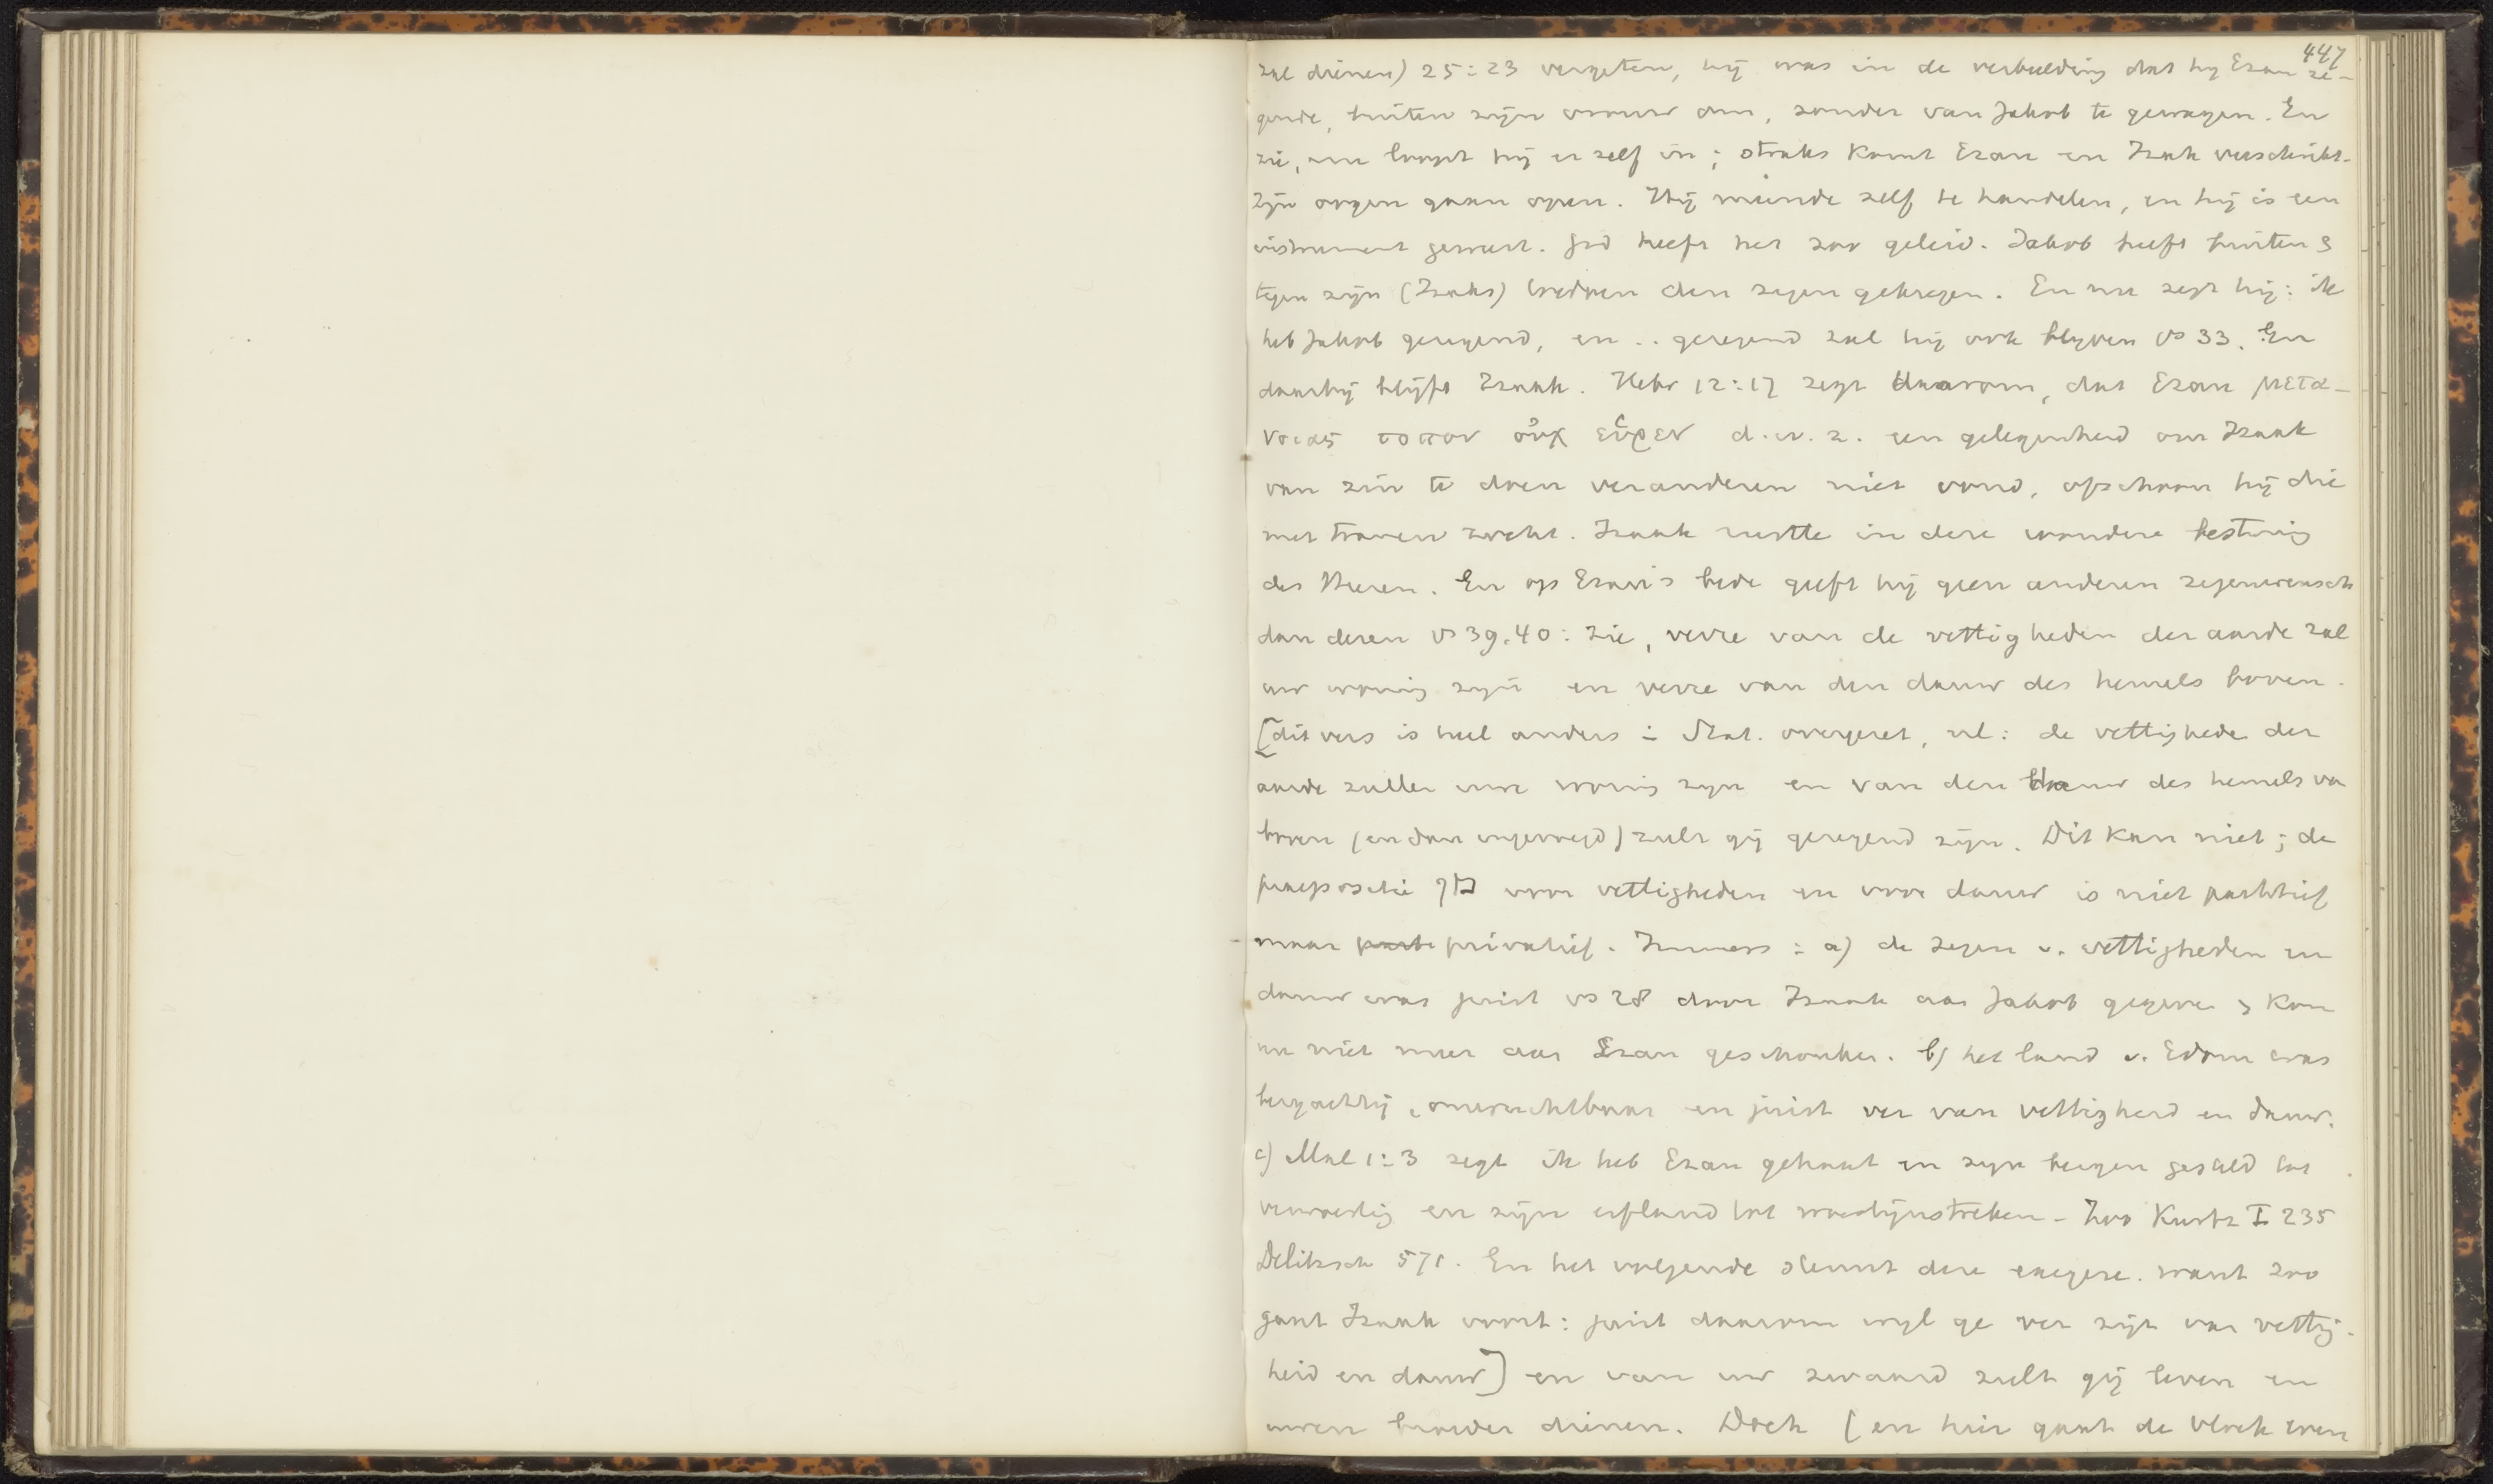 447
zal dienen) 25:23 vergeten, hij was in de verbeelding dat hij Ezau ze-
gende, buiten zijn vrouw om, zonder van Jakob te gewagen. En
zie, nu loopt hij er zelf in; straks komt Ezau en Izak verschrikt.
Zijn oogen gaan open. Hij meende zelf te handelen, en hij is een
instrument geweest. God heeft het zoo geleid. Jakob heeft buiten &
tegen zijn (Izaks) bedoen den zegen gekregen. En nu zegt hij: ik
heb Jakob gezegend, en .. gezegend zal hij ook blijven vs 33. En
daarbij blijft Izaak. Hebr 12:17 zegt daarom, dat Ezau μετα-
νοιας τοπον οὐκ εὗρεν d.w.z. een gelegenheid om Izaak
van zin te doen veranderen niet vond, ofschoon hij die
met tranen zocht. Izaak rustte in deze wondere besturing
des Heeren. En op Ezau's bede geeft hij geen anderen zegenwensch
dan dezen vs 39.40: zie, verre van de vettigheden der aarde zal
uw woning zijn en verre van den dauw des hemels boven.
[dit vers is heel anders in Stat. overgezet, nl: de vettighede der
aarde zullen uwe woning zijn en van den dauw des hemels va
boven (en dan ingevoegd) zult gij gezegend zijn. Dit kan niet; de
praepositie מן voor vettigheden en voor dauw is niet partitief
maar parti privatief. Immers: a) de zegen v. vettigheden en
dauw was juist vs 28 door Izaak aan Jakob gegeven & kon
nu niet meer aan Ezau geschonken. b) het land v. Edom was
bergachtig, onvruchtbaar en juist ver van vettigheid en dauw.
c) Mal 1:3 zegt ik heb Ezau gehaat en zijn bergen gesteld tot
verwoesting en zijn erfland tot woestijnstreken - Zoo Kurtz I 235
Delitzsch 571. En het volgende steunt deze exegese. want zoo
gaat Izaak voort: juist daarom wijl ge ver zijt van vettig-
heid en dauw] en van uw zwaard zult gij leven en
uwen broeder dienen. Doch (en hier gaat de vloek even